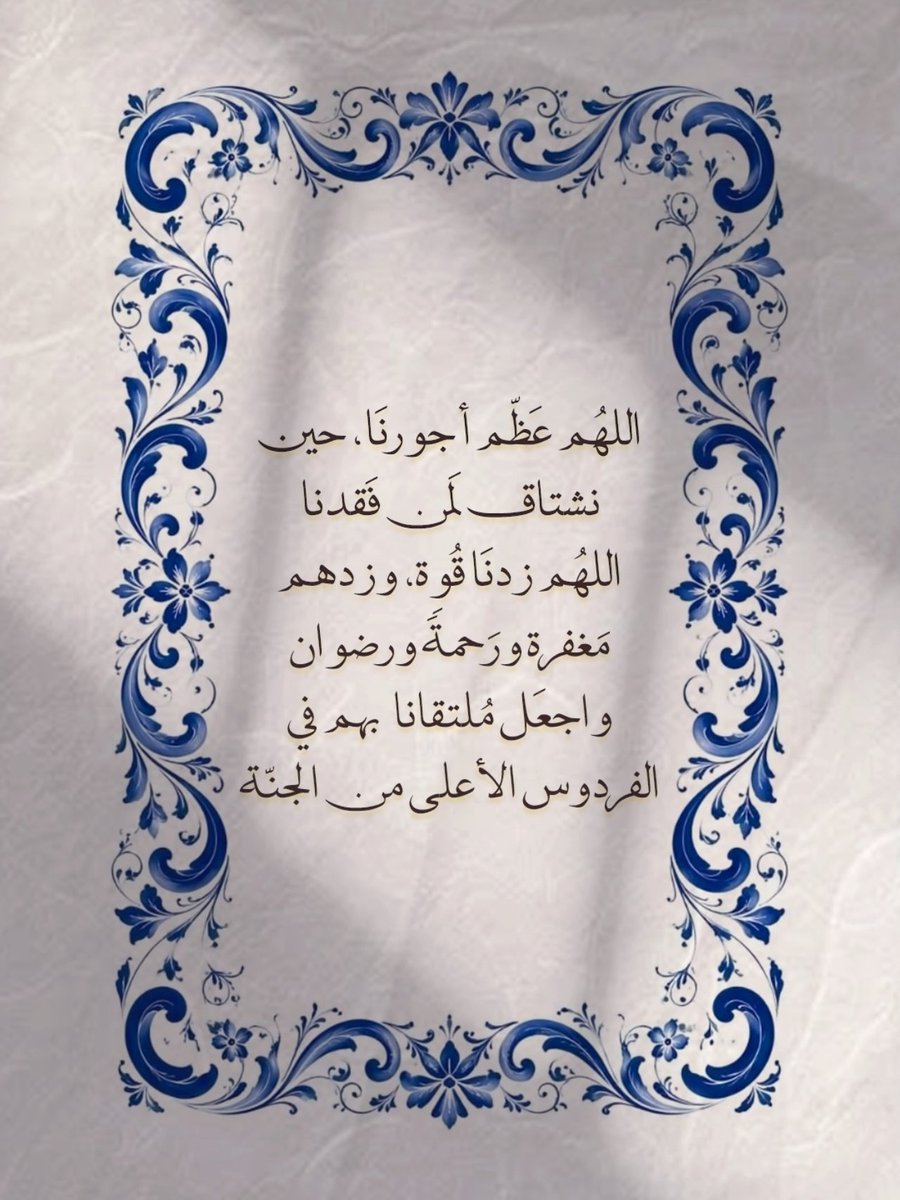 اللهُم عَظّم أجورنَا، حين
نشتاق لَمن فَقدنا
اللهُم زدنَا قُوة، وزدهم
مَغفرة ورَحمةََ ورضوان
واجعَل مُلتقانا بهم في
الفردوس الأعلى من الجنّة